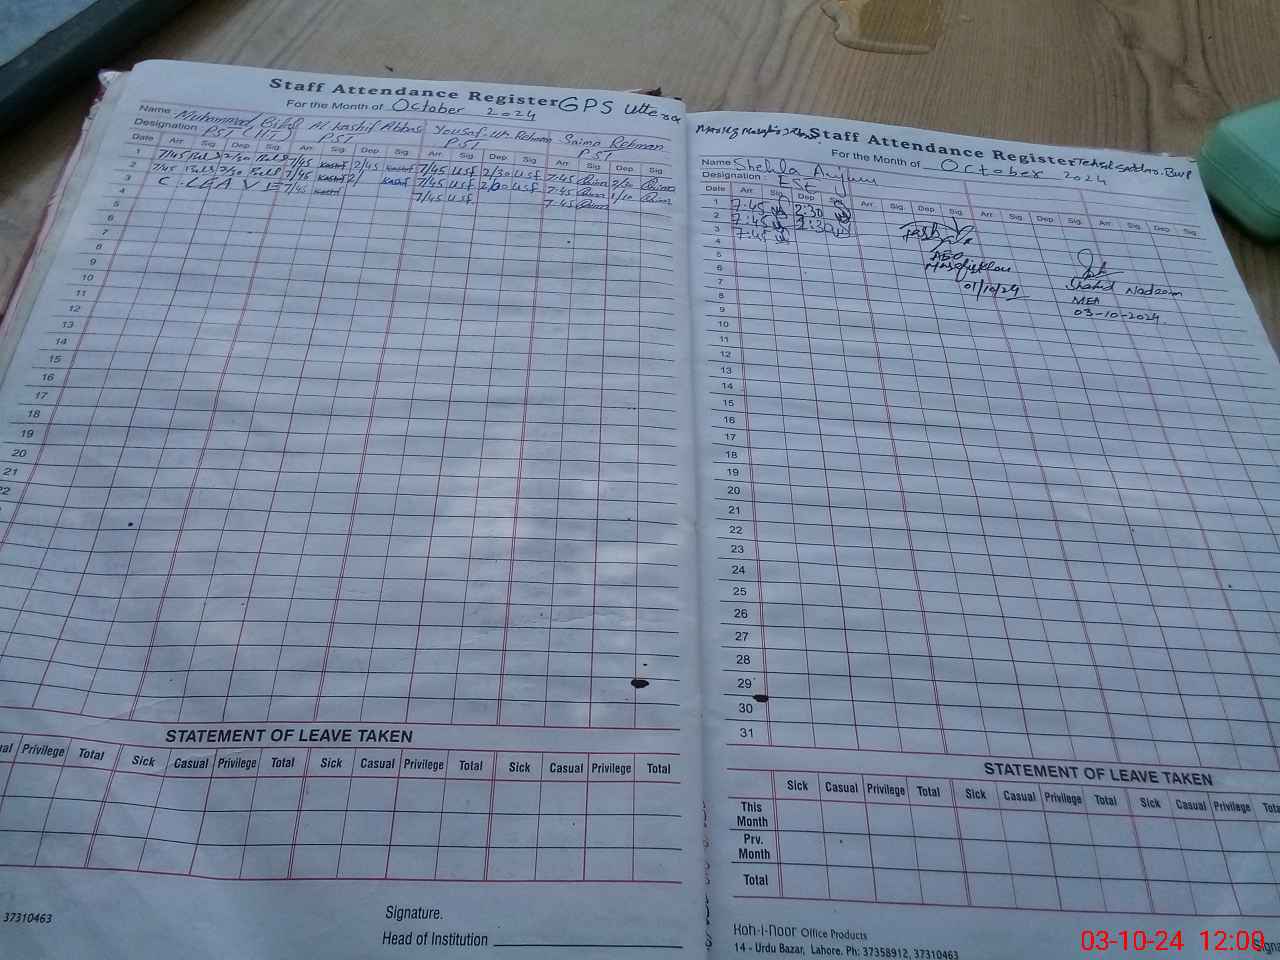 Staff Attendance Register GPS Uttera
For the Month of October 2024
Name Muhammad Bilal Al kashif Abbas Yousaf-Ur-Rehman Saima Rehman
Designation PST PST PST PST
Date Arr. Sig. Dep. Sig. Arr. Sig. Dep. Sig. Arr. Sig. Dep. Sig. Arr. Sig. Dep. Sig.
1 7/45 2/30 7/45 Kashif 2/45 Kashif 7/45 Usf 2/30 Usf 7:45
2 7/45 2/30 7/45 Kashif Kashif 7/45 Usf Usf 7:45
3 C. LEAVE 7/45 Kashif 7/45 Usf. 7:45
4
5
6
7
8
9
10
11
12
13
14
15
16
17
18
19
20
21
22
STATEMENT OF LEAVE TAKEN
Privilege Total Sick Casual Privilege Total Sick Casual Privilege Total Sick Casual Privilege Total
37310463
Signature.
Head of Institution
Staff Attendance Register
For the Month of October 2024
Name Shehla Anjum
Designation : EST
Date Arr. Sig. Dep. Sig. Arr. Sig. Dep. Sig. Arr. Sig. Dep. Sig. Arr. Sig. Dep. Sig.
1 7:45 2:30
2 7:45 2:30
3 7:45
4
5
6
7
8
9
10
11
12
13
14
15
16
17
18
19
20
21
22
23
24
25
26
27
28
29
30
31
AEO
01/10/24
Shahid Nadeem
MEA
03-10-2024.
STATEMENT OF LEAVE TAKEN
Sick Casual Privilege Total Sick Casual Privilege Total Sick Casual Privilege
This Month
Prv. Month
Total
Koh-i-Noor Office Products
14 - Urdu Bazar, Lahore. Ph: 37358912, 37310463
03-10-24 12:00